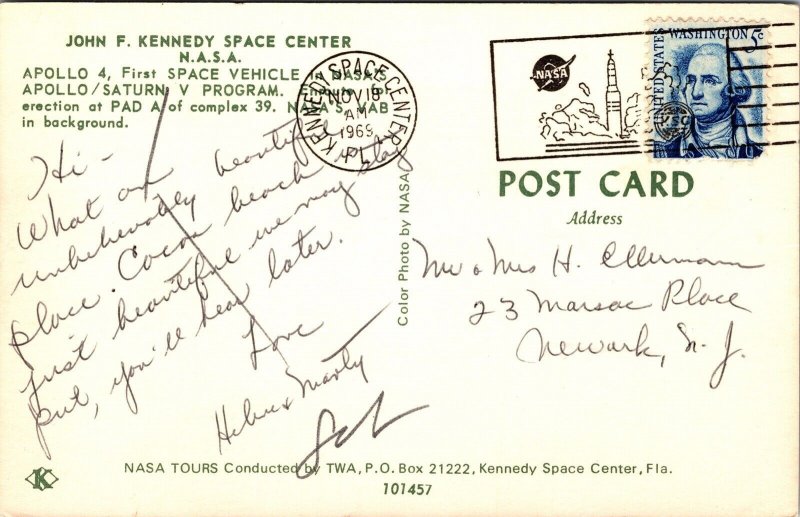 JOHN F. KENNEDY SPACE CENTER
N.A.S.A.
APOLLO 4, First SPACE VEHICLE in NASA'S
APOLLO/SATURN V PROGRAM.
erection at PAD A of complex 39. NASA'S VAB
in background.
KENNEDY SPACE CENTER
NOV 18
AM
1969
FL
NASA
UNITED STATES
WASHINGTON 5c
Hi -
What an beautiful
unbelievably
place. Cocoa beach
just beautiful we may stay
put, you'll hear later.
Love
Helene & Marty
Color Photo by NASA
POST CARD
Address
Mr & Mrs H. Ellermann
23 Marsac Place
Newark, N. J.
NASA TOURS Conducted by TWA, P.O. Box 21222, Kennedy Space Center, Fla.
101457
K